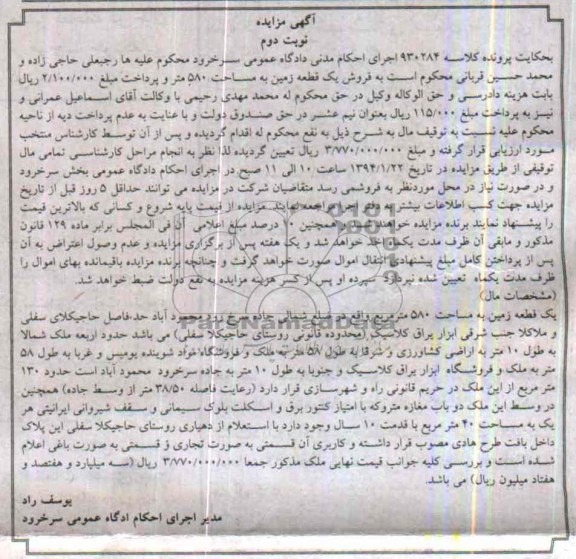 آگهی مزایده
نوبت دوم
بحکایت پرونده کلاسه ۹۳۰۲۸۴ اجرای احکام مدنی دادگاه عمومی سرخرود محکوم علیه ها رجبعلی حاجی زاده و
محمد حسین قربانی محکوم است به فروش یک قطعه زمین به مساحت ۵۸۰ متر و پرداخت مبلغ ۲/۱۰۰/۰۰۰ ریال
بابت هزینه دادرسی و حق الوکاله وکیل در حق محکوم له محمد مهدی رحیمی با وکالت آقای اسماعیل عمرانی و
نیز به پرداخت مبلغ ۱۱۵/۰۰۰ ریال بعنوان نیم عشر در حق صندوق دولت و با عنایت به عدم پرداخت دیه از ناحیه
محکوم علیه نسبت به توقیف مال به شرح ذیل به نفع محکوم له اقدام گردیده و پس از آن توسط کارشناس منتخب
مورد ارزیابی قرار گرفته و مبلغ ۳/۷۷۰/۰۰۰/۰۰۰ ریال تعیین گردیده لذا نظر به انجام مراحل کارشناسی تمامی مال
توقیفی از طریق مزایده در تاریخ ۱۳۹۴/۱/۲۲ ساعت ۱۰ الی ۱۱ صبح در اجرای احکام دادگاه عمومی بخش سرخرود
و در صورت نیاز در محل موردنظر به فروشمی رسد متقاضیان شرکت در مزایده می توانند حداقل ۵ روز قبل از تاریخ
مزایده جهت کسب اطلاعات بیشتر به دفتر اجرا مراجعه نمایند. مزایده از قیمت پایه شروع و کسانی که بالاترین قیمت
را پیشنهاد نمایند برنده مزایده خواهند بود. همچنین ۱۰ درصد مبلغ اعلامی آن فی المجلس برابر ماده ۱۲۹ قانون
مذکور و مابقی آن ظرف مدت یکماه اخذ خواهد شد و یک هفته پس از برگزاری مزایده و عدم وصول اعتراض به آن
پس از پرداختن کامل مبلغ پیشنهادی انتقال اموال صورت خواهد گرفت و چنانچه برنده مزایده باقیمانده بهای اموال را
ظرف مدت یکماه تعیین شده نپردازد سپرده او پس از کسر هزینه مزایده به نفع دولت ضبط خواهد شد.
(مشخصات مال)
یک قطعه زمین به مساحت ۵۸۰ مترمربع واقع در ضلع شمالی جاده سرخ رود محمود آباد حد-فاصل حاجیکلای سفلی
و ملاکلا جنب شرقی ابزار یراق کلاسیک (محدوده قانونی روستای حاجیکلا سفلی) می باشد حدود اربعه ملک شمالا
به طول ۱۰ متر به اراضی کشاورزی و شرقا به طول ۵۸ متر به ملک و فروشگاه مواد شوینده پومیس و غربا به طول ۵۸
متر به ملک و فروشگاه ابزار یراق کلاسیک و جنوبا به طول ۱۰ متر به جاده سرخرود محمود آباد است حدود ۱۳۰
متر مربع از این ملک در حریم قانونی راه و شهرسازی قرار دارد (رعایت فاصله ۳۸/۵۰ متر از وسط جاده) همچنین
در وسط این ملک دو باب مغازه متروکه با امتیاز کنتور برق و اسکلت بلوک سیمانی و سقف شیروانی ایرانیتی هر
یک به مساحت ۴۰ متر مربع با قدمت ۱۰ سال وجود دارد با استعلام از دهیاری روستای حاجیکلا سفلی این پلاک
داخل بافت طرح هادی مصوب قرار داشته و کاربری آن قسمتی به صورت تجاری و قسمتی به صورت باغی اعلام
شده است و بررسی کلیه جوانب قیمت نهایی ملک مذکور جمعا ۳/۷۷۰/۰۰۰/۰۰۰ ریال (سه میلیارد و هفتصد و
هفتاد میلیون ریال) می باشد.
یوسف راد
مدیر اجرای احکام ادگاه عمومی سرخرود